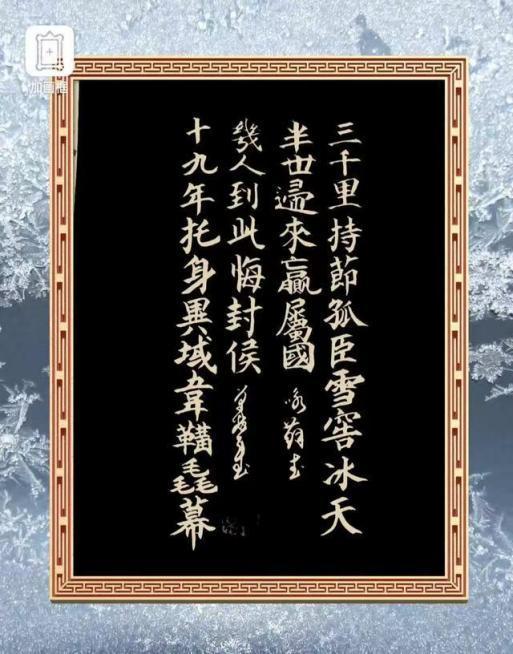 加画框
三千里持節孤臣雪窖冰天
半世歸來贏屬國 咏蘇武
幾人到此悔封侯
十九年托身異域韋韝毳幕